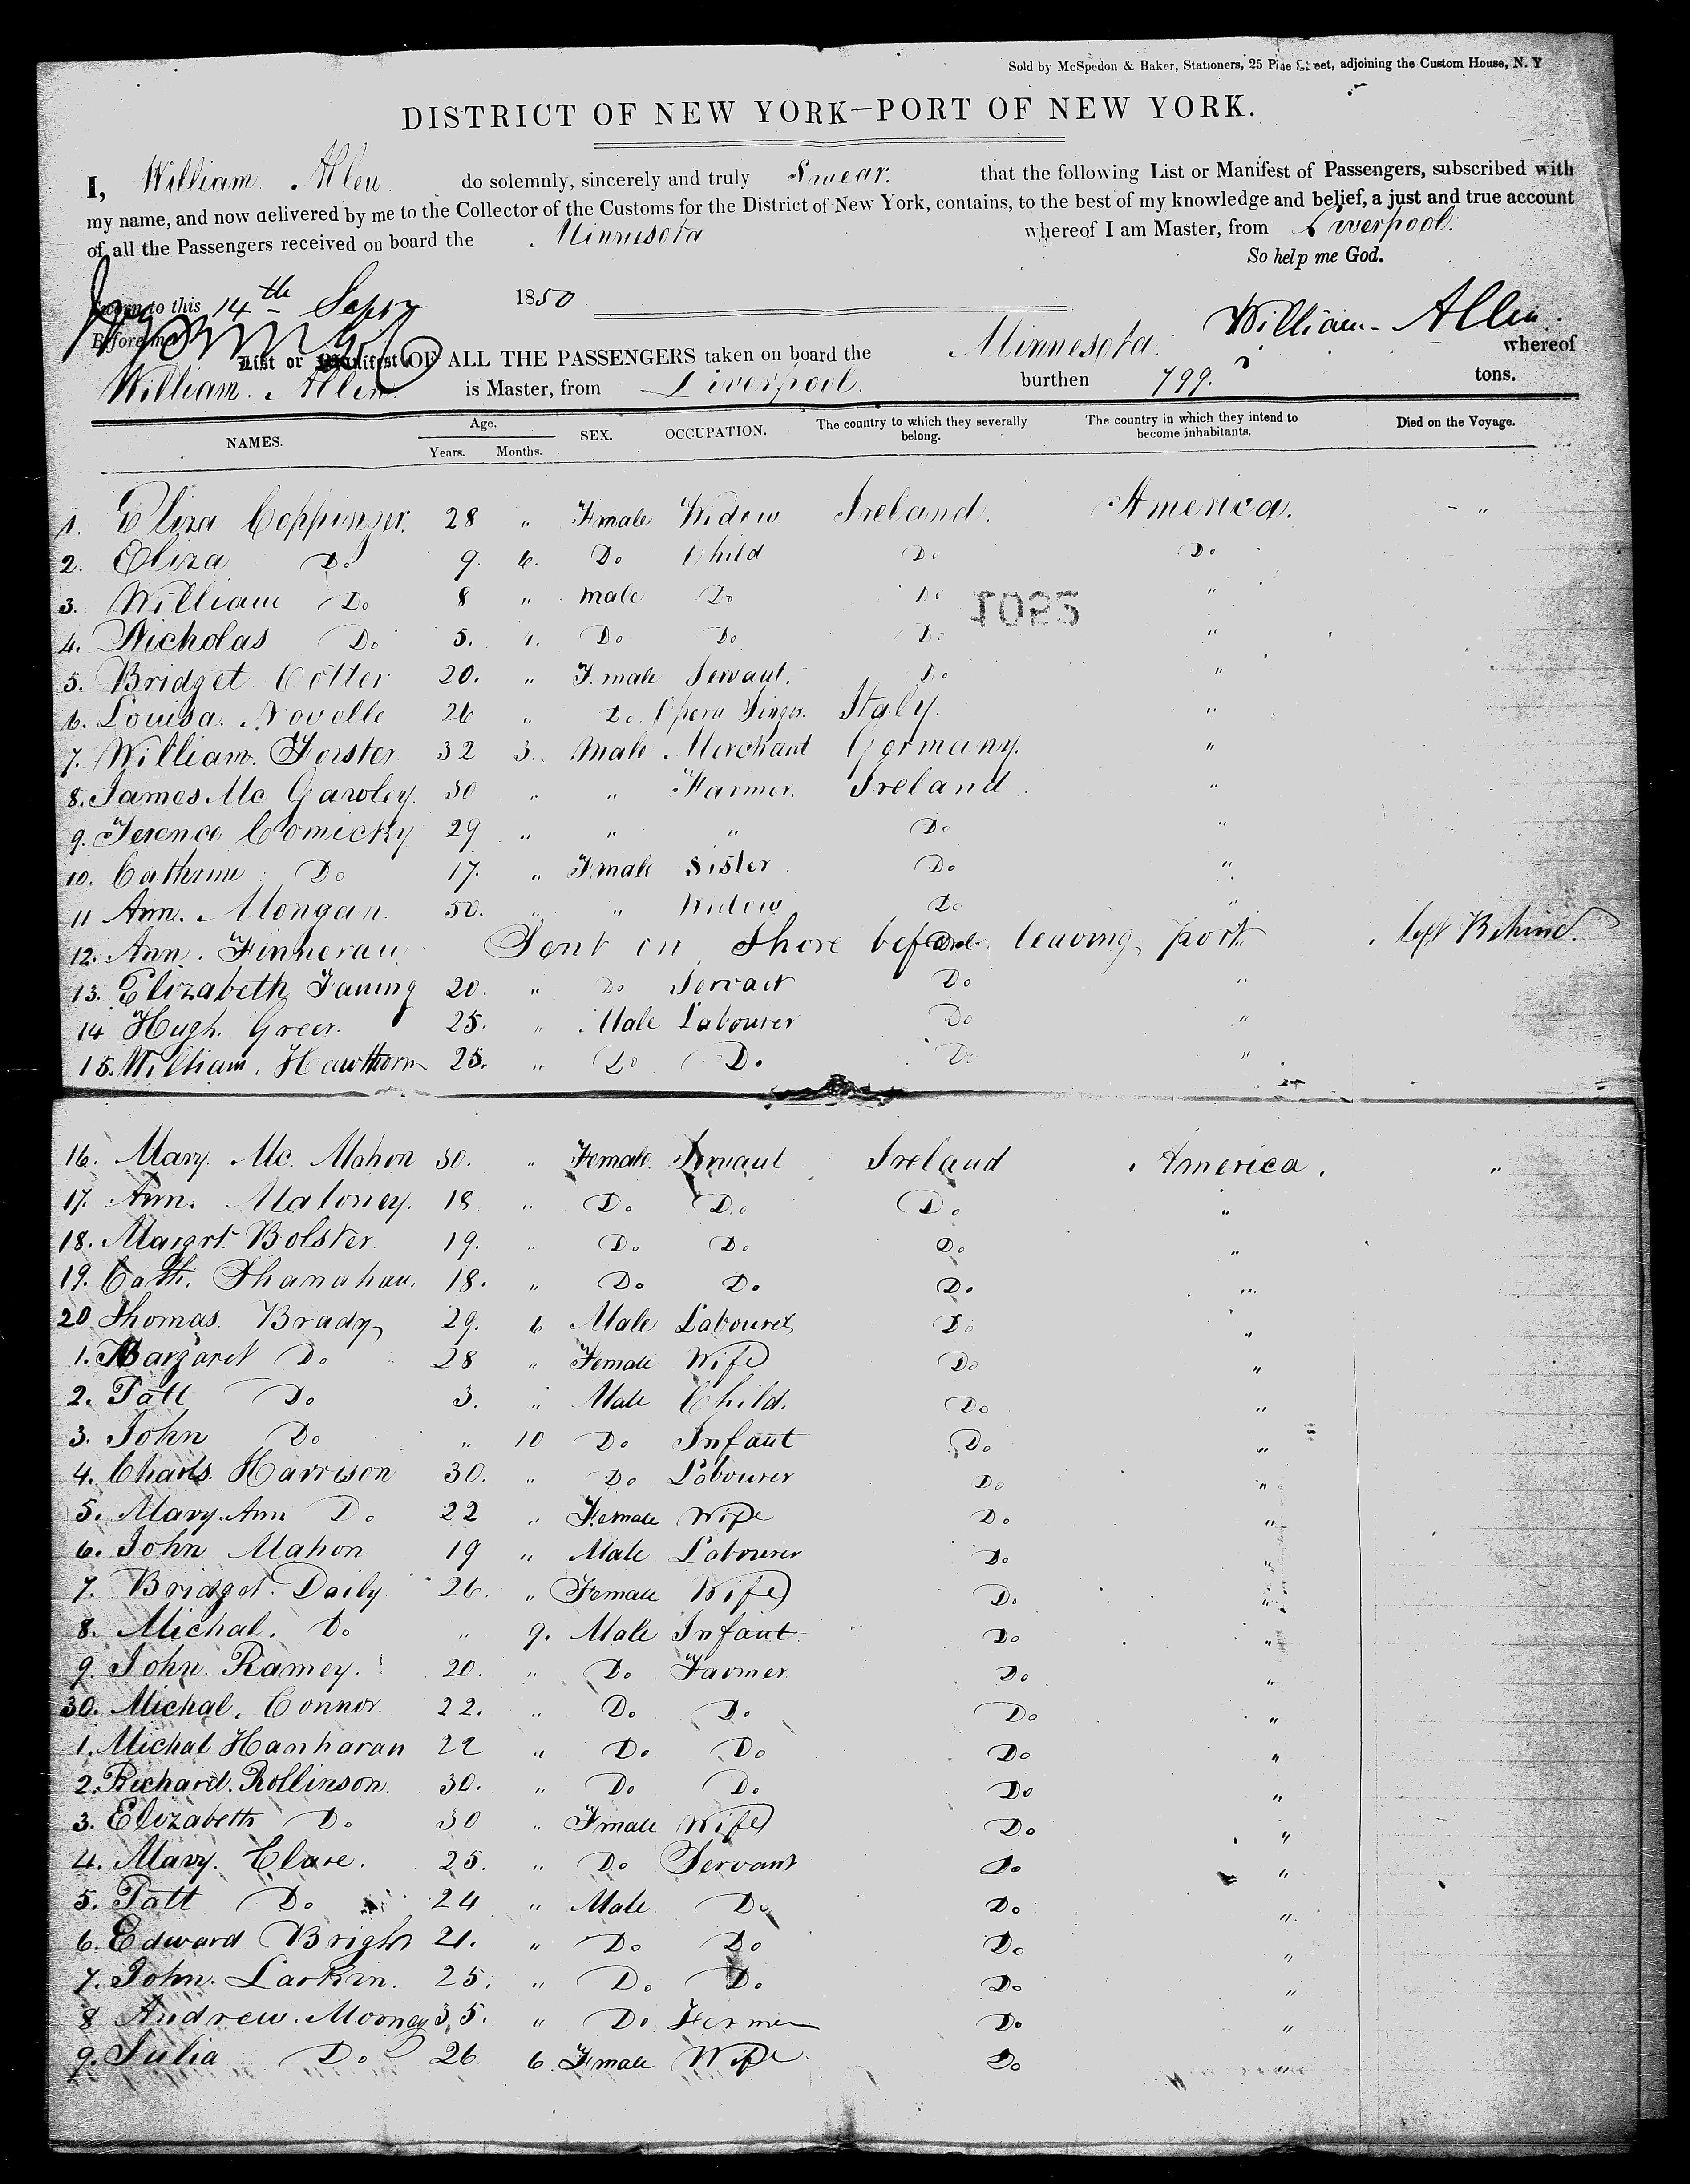 Sold by McSpedon & Baker, Stationers, 25 Pine Street, adjoining the Custom House, N. Y
DISTRICT OF NEW YORK—PORT OF NEW YORK.
I, William Allen do solemnly, sincerely and truly Swear that the following List or Manifest of Passengers, subscribed with
my name, and now delivered by me to the Collector of the Customs for the District of New York, contains, to the best of my knowledge and belief, a just and true account
of all the Passengers received on board the Minnesota whereof I am Master, from Liverpool.
So help me God.
Sworn to this 14th Sept 1850
William Allen
Before me
List or Manifest OF ALL THE PASSENGERS taken on board the Minnesota whereof
William Allen is Master, from Liverpool. burthen 799. tons.
NAMES. Age. Years. Months. SEX. OCCUPATION. The country to which they severally belong. The country in which they intend to become inhabitants. Died on the Voyage.
1. Eliza Coppinger. 28 " Female Widow Ireland. America. "
2. Eliza Do 9. 6. Do Child Do Do
3. William Do 8 " male Do Do "
1085
4. Nicholas Do 5. Do Do Do "
5. Bridget Cotter 20. " Female Servant. Do "
6. Louisa Novelle 26 " Do Opera Singer. Italy. "
7. William Forster 32 3. Male Merchant Germany. "
8. James Mc Gawley. 30 " " Farmer. Ireland "
9. Terence Comicky 29 " " " Do "
10. Catherine Do 17. " Female Sister Do "
11 Ann Mongan. 50. " " Widow Do "
12. Ann Finneran Sent on Shore before Do leaving port. left Behind.
13. Elizabeth Faning 20. " Do Servant Do "
14 Hugh Greer. 25. " Male Labourer Do "
15. William Hawthorn 25. " Do Do Do "
16. Mary Mc. Mahon 30. " Female Servant Ireland America. "
17. Ann. Maloney. 18 " Do Do Do "
18. Margrt. Bolster 19. " Do Do Do "
19. Cath. Shanahan. 18. " Do Do Do "
20 Thomas Brady 29. 6 Male Labourer Do "
1. Margaret Do 28 " Female Wife Do "
2. Patt Do 3. " Male Child. Do "
3. John Do " 10 Do Infant Do "
4. Charls. Harrison 30. " Do Labourer Do "
5. Mary Ann Do 22 " Female Wife Do "
6. John Mahon 19 " Male Labourer Do "
7. Bridget Daily 26. " Female Wife Do "
8. Michal. Do " 9. Male Infant Do "
9. John Ramey. 20. " Do Farmer Do "
30. Michal. Connor 22. " Do Do Do "
1. Michal Hanharan 22 " Do Do Do "
2. Richard. Rollinson. 30. " Do Do Do "
3. Elizabeth Do 30 " Female Wife Do "
4. Mary Clare. 25. " Do Servant Do "
5. Patt Do 24 " Male Do Do "
6. Edward Bright 21. " Do Do Do "
7. John. Larkin. 25. " Do Do Do "
8 Andrew. Mooney 35. " Do Farmer Do "
9. Julia Do 26. 6. Female Wife Do "